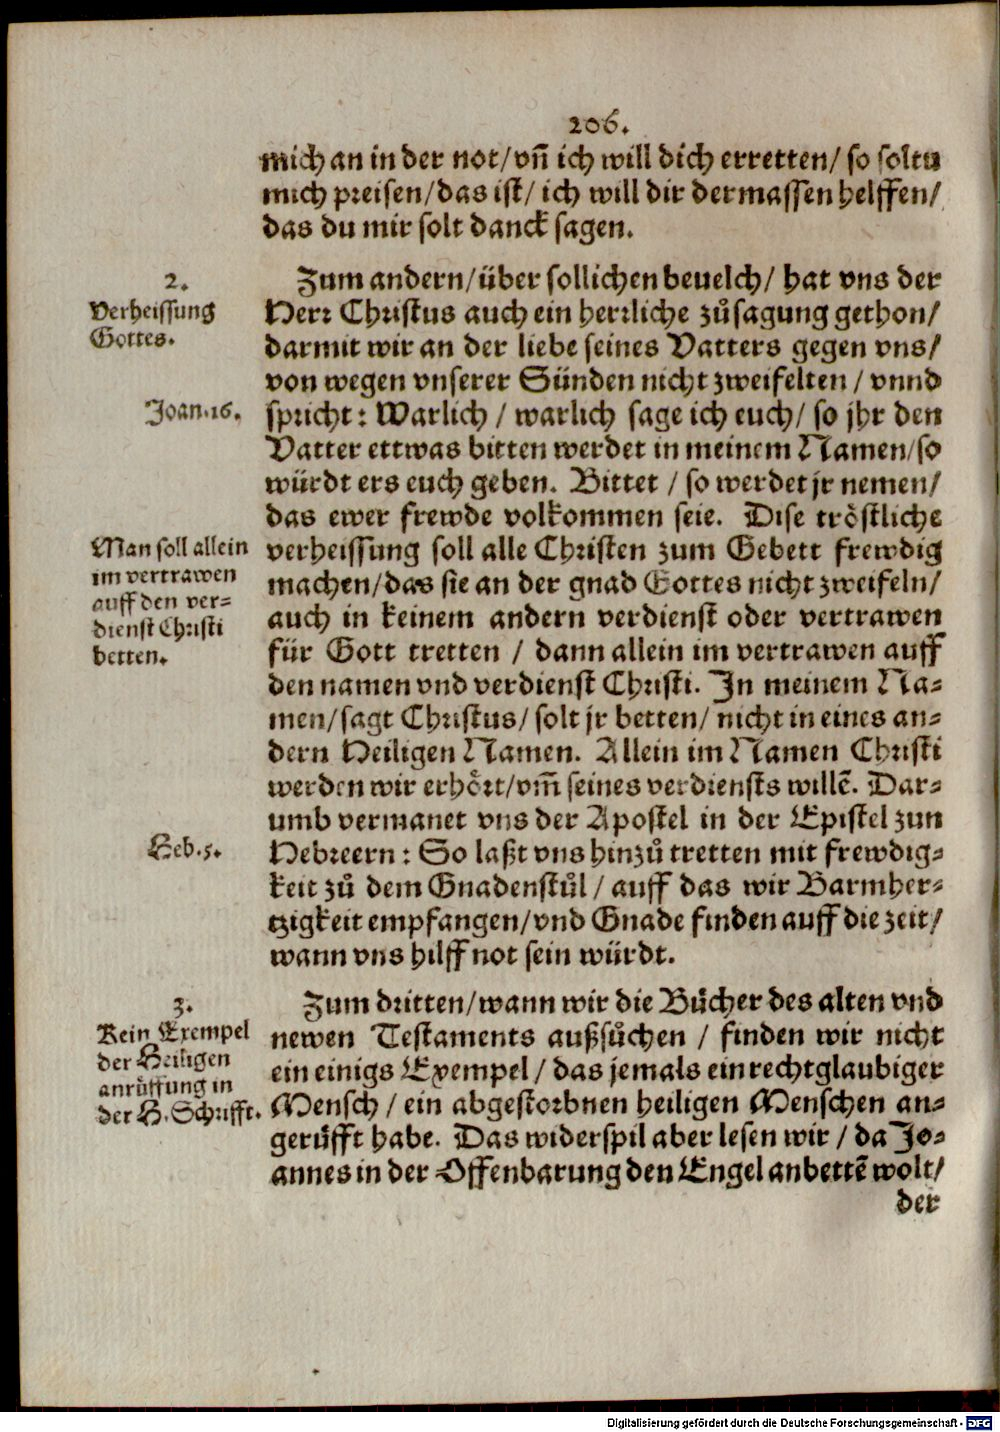 206.
mich an in der not/vñ ich will dich erretten/ so soltu
mich preisen/das ist/ ich will dir dermassen helffen/
das du mir solt danck sagen.
2.
Verheissung
Gottes.
Zum andern/über sollichen beuelch/ hat vns der
Herr Christus auch ein herrliche zůsagung gethon/
darmit wir an der liebe seines Vatters gegen vns/
von wegen vnserer Sünden nicht zweifelten / vnnd
Joan.16.
spricht: Warlich / warlich sage ich euch/ so jhr den
Vatter ettwas bitten werdet in meinem Namen/so
würdt ers euch geben. Bittet / so werdet jr nemen/
das ewer frewde volkommen seie. Dise tröstliche
Man soll allein
im vertrawen
auff den ver=
dienst Christi
betten.
verheissung soll alle Christen zum Gebett frewdig
machen/das sie an der gnad Gottes nicht zweifeln/
auch in keinem andern verdienst oder vertrawen
für Gott tretten / dann allein im vertrawen auff
den namen vnd verdienst Christi. In meinem Na=
men/sagt Christus/ solt jr betten/ nicht in eines an=
dern Heiligen Namen. Allein im Namen Christi
werden wir erhört/vm̃ seines verdiensts willẽ. Dar=
umb vermanet vns der Apostel in der Epistel zun
Heb.5.
Hebreern: So laßt vns hinzů tretten mit frewdig=
keit zů dem Gnadenstůl / auff das wir Barmher=
tzigkeit empfangen/vnd Gnade finden auff die zeit/
wann vns hilff not sein würdt.
3.
Kein Exempel
der Heiligen
anrüffung in
der H. Schrifft.
Zum dritten/wann wir die Bücher des alten vnd
newen Testaments außsůchen / finden wir nicht
ein einigs Exempel / das jemals ein rechtglaubiger
Mensch / ein abgestorbnen heiligen Menschen an=
gerüfft habe. Das widerspil aber lesen wir / da Jo=
annes in der Offenbarung den Engel anbettẽ wolt/
der
Digitalisierung gefördert durch die Deutsche Forschungsgemeinschaft - DFG